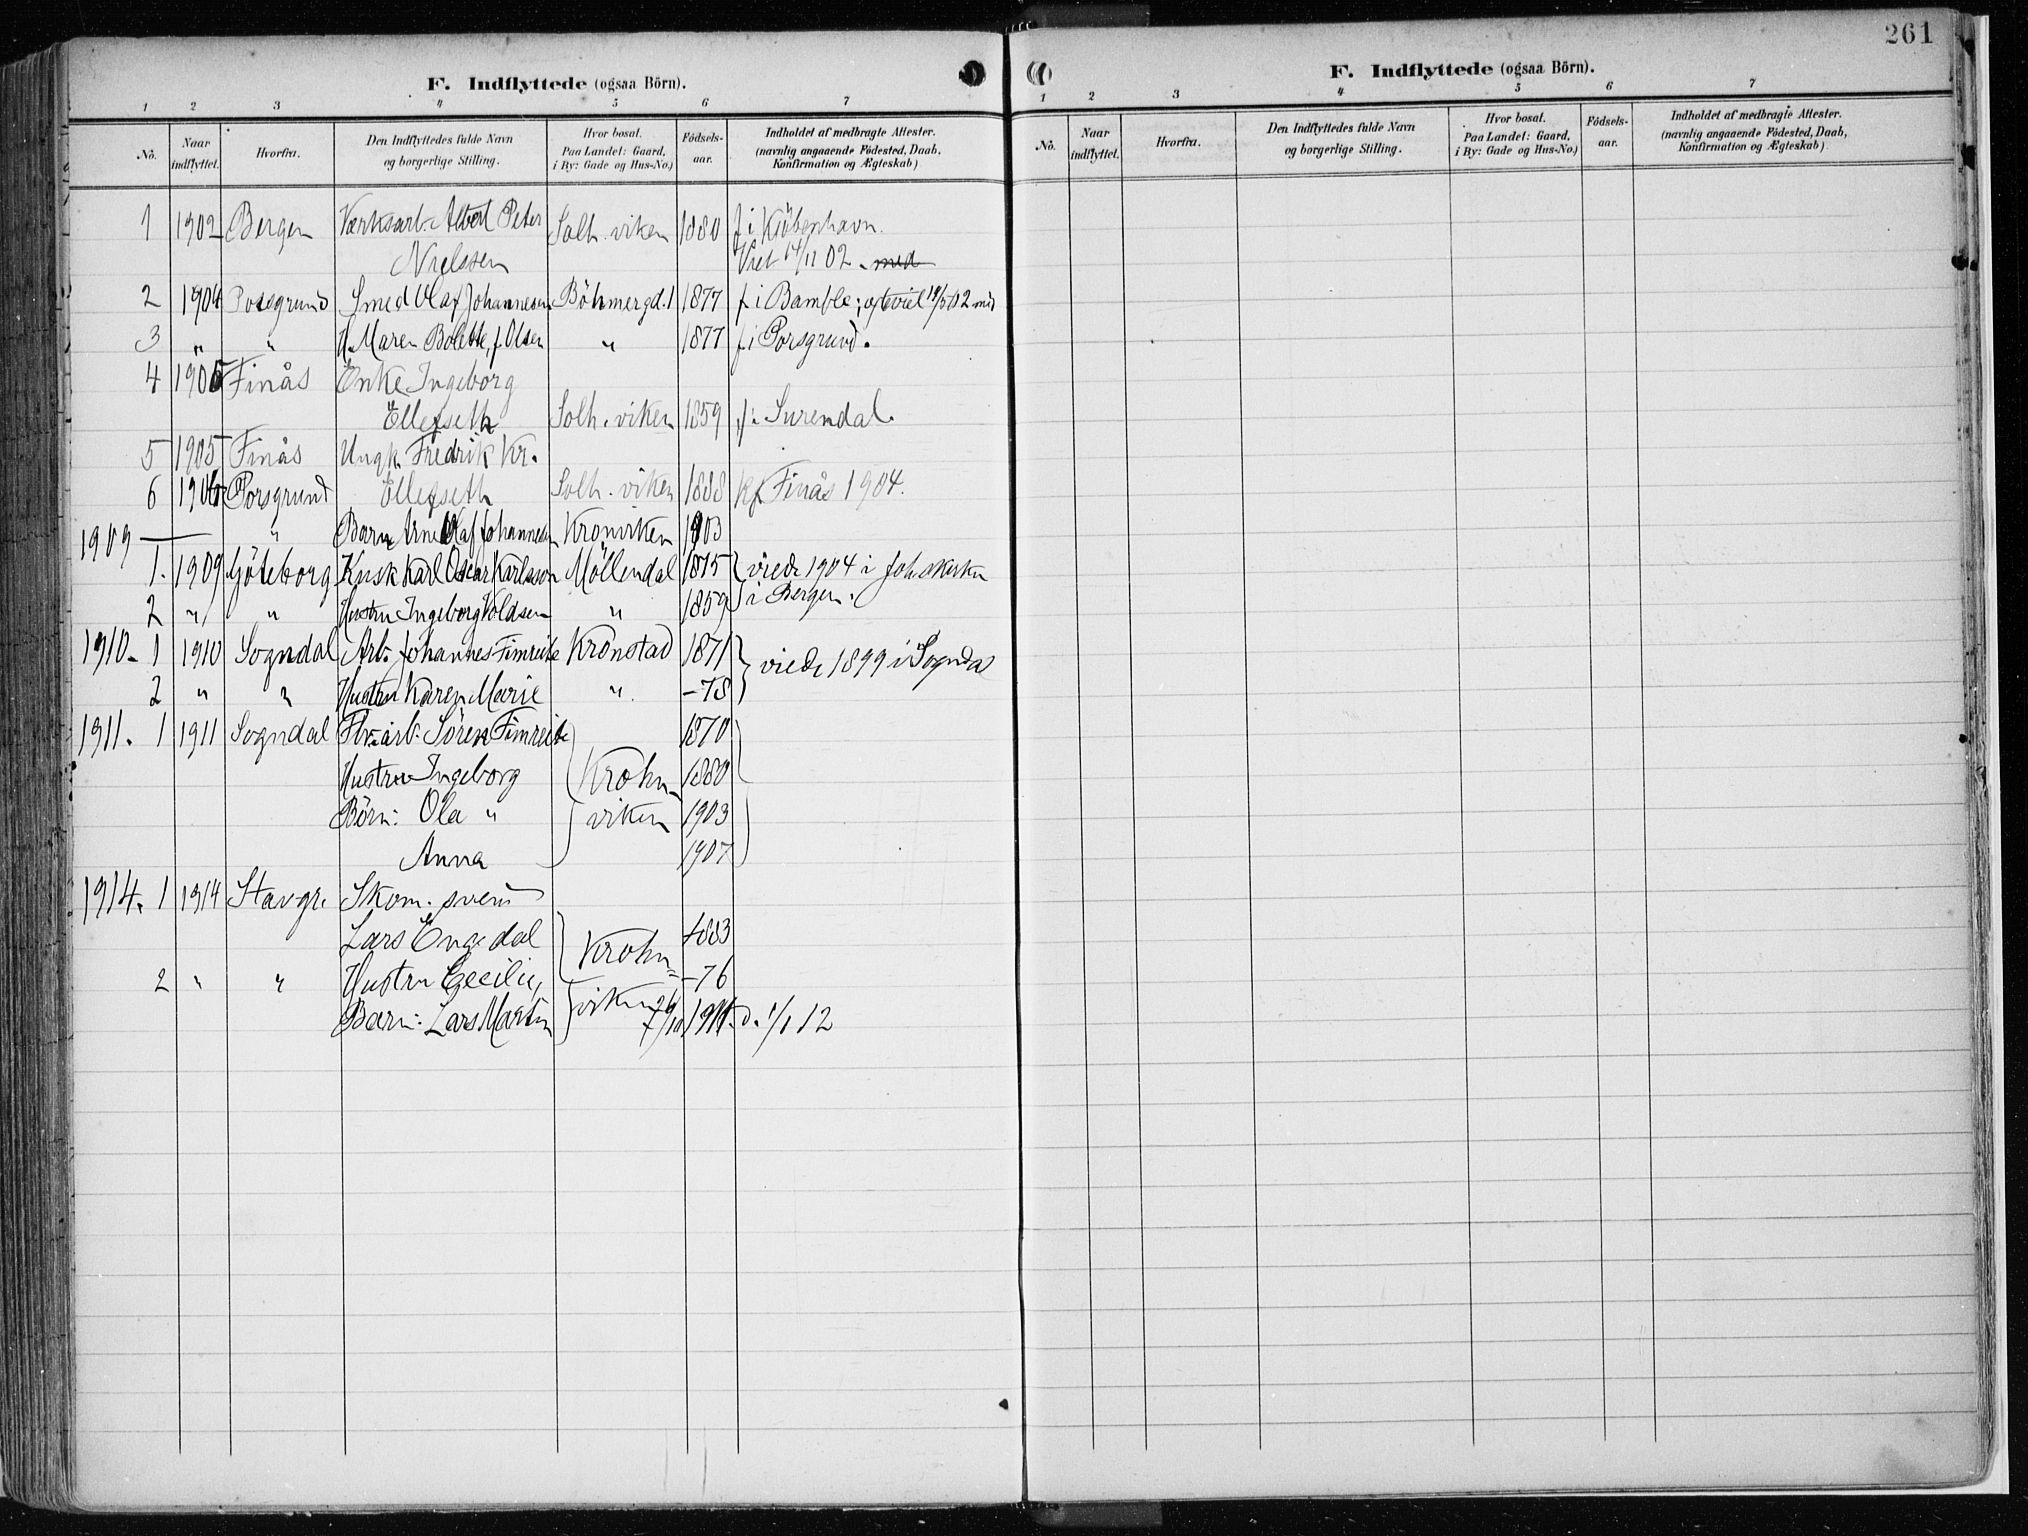 261
F. Indflyttede (ogsaa Börn).
1 2 3 4 5 6 7
No. Naar indflyttet. Hvorfra. Den Indflyttedes fulde Navn og borgerlige Stilling. Hvor bosat. Paa Landet: Gaard, i By: Gade og Hus-No.) Födsels-aar. Indholdet af medbragte Attester. (navnlig angaaende Födested, Daab, Konfirmation og Ægteskab)
1 1902 Bergen Værksarb. Albert Peter Solh. viken 1880 f i Kjöbenhavn.
Nielssen Viet 14/11 02. med
2 1904 Porsgrund Smed Olaf Johannesen Böhmergd. 1 1877 f i Bamble; ægteviet 18/5 02 med
3 " " H. Maren Bolette, f. Olsen " 1877 f i Porsgrund.
4 1905 Finås Enke Ingeborg
Ellefseth Solh. viken 1859 f. i Surendal.
5 1905 Finås Ungk. Fredrik Kr.
6 1906 Porsgrund Ellefseth Solh. viken 1888 kf Finås 1904.
1909 " Barn Arne Olaf Johannesen Kronviken 1903
1. 1909 Göteborg Kusk Karl Oscar Karlsson Möllendal 1875 } viede 1904 i Joh.kirken
2 " " Hustru Ingeborg Voldsen " 1859 } i Bergen.
1910. 1 1910 Sogndal Arb. Johannes Fimreite Kronstad 1871 } viede 1899 i Sogndal
2 " " Hustru Karen Marie " -78
1911. 1 1911 Sogndal Fbr.arb. Sören Fimreite 1870
Hustru Ingeborg Krohn- 1880
Börn: Ola " viken 1903
Anna 1907
1914. 1 1914 Stavgr. Skom. svend
Lars Engedal Krohn= 1883
2 " " Hustru Cecilie, -76
Barn: Lars Martin viken 1911 d. 1/1 12
F. Indflyttede (ogsaa Börn).
1 2 3 4 5 6 7
No. Naar indflyttet. Hvorfra. Den Indflyttedes fulde Navn og borgerlige Stilling. Hvor bosat. Paa Landet: Gaard, i By: Gade og Hus-No.) Födsels-aar. Indholdet af medbragte Attester. (navnlig angaaende Födested, Daab, Konfirmation og Ægteskab)